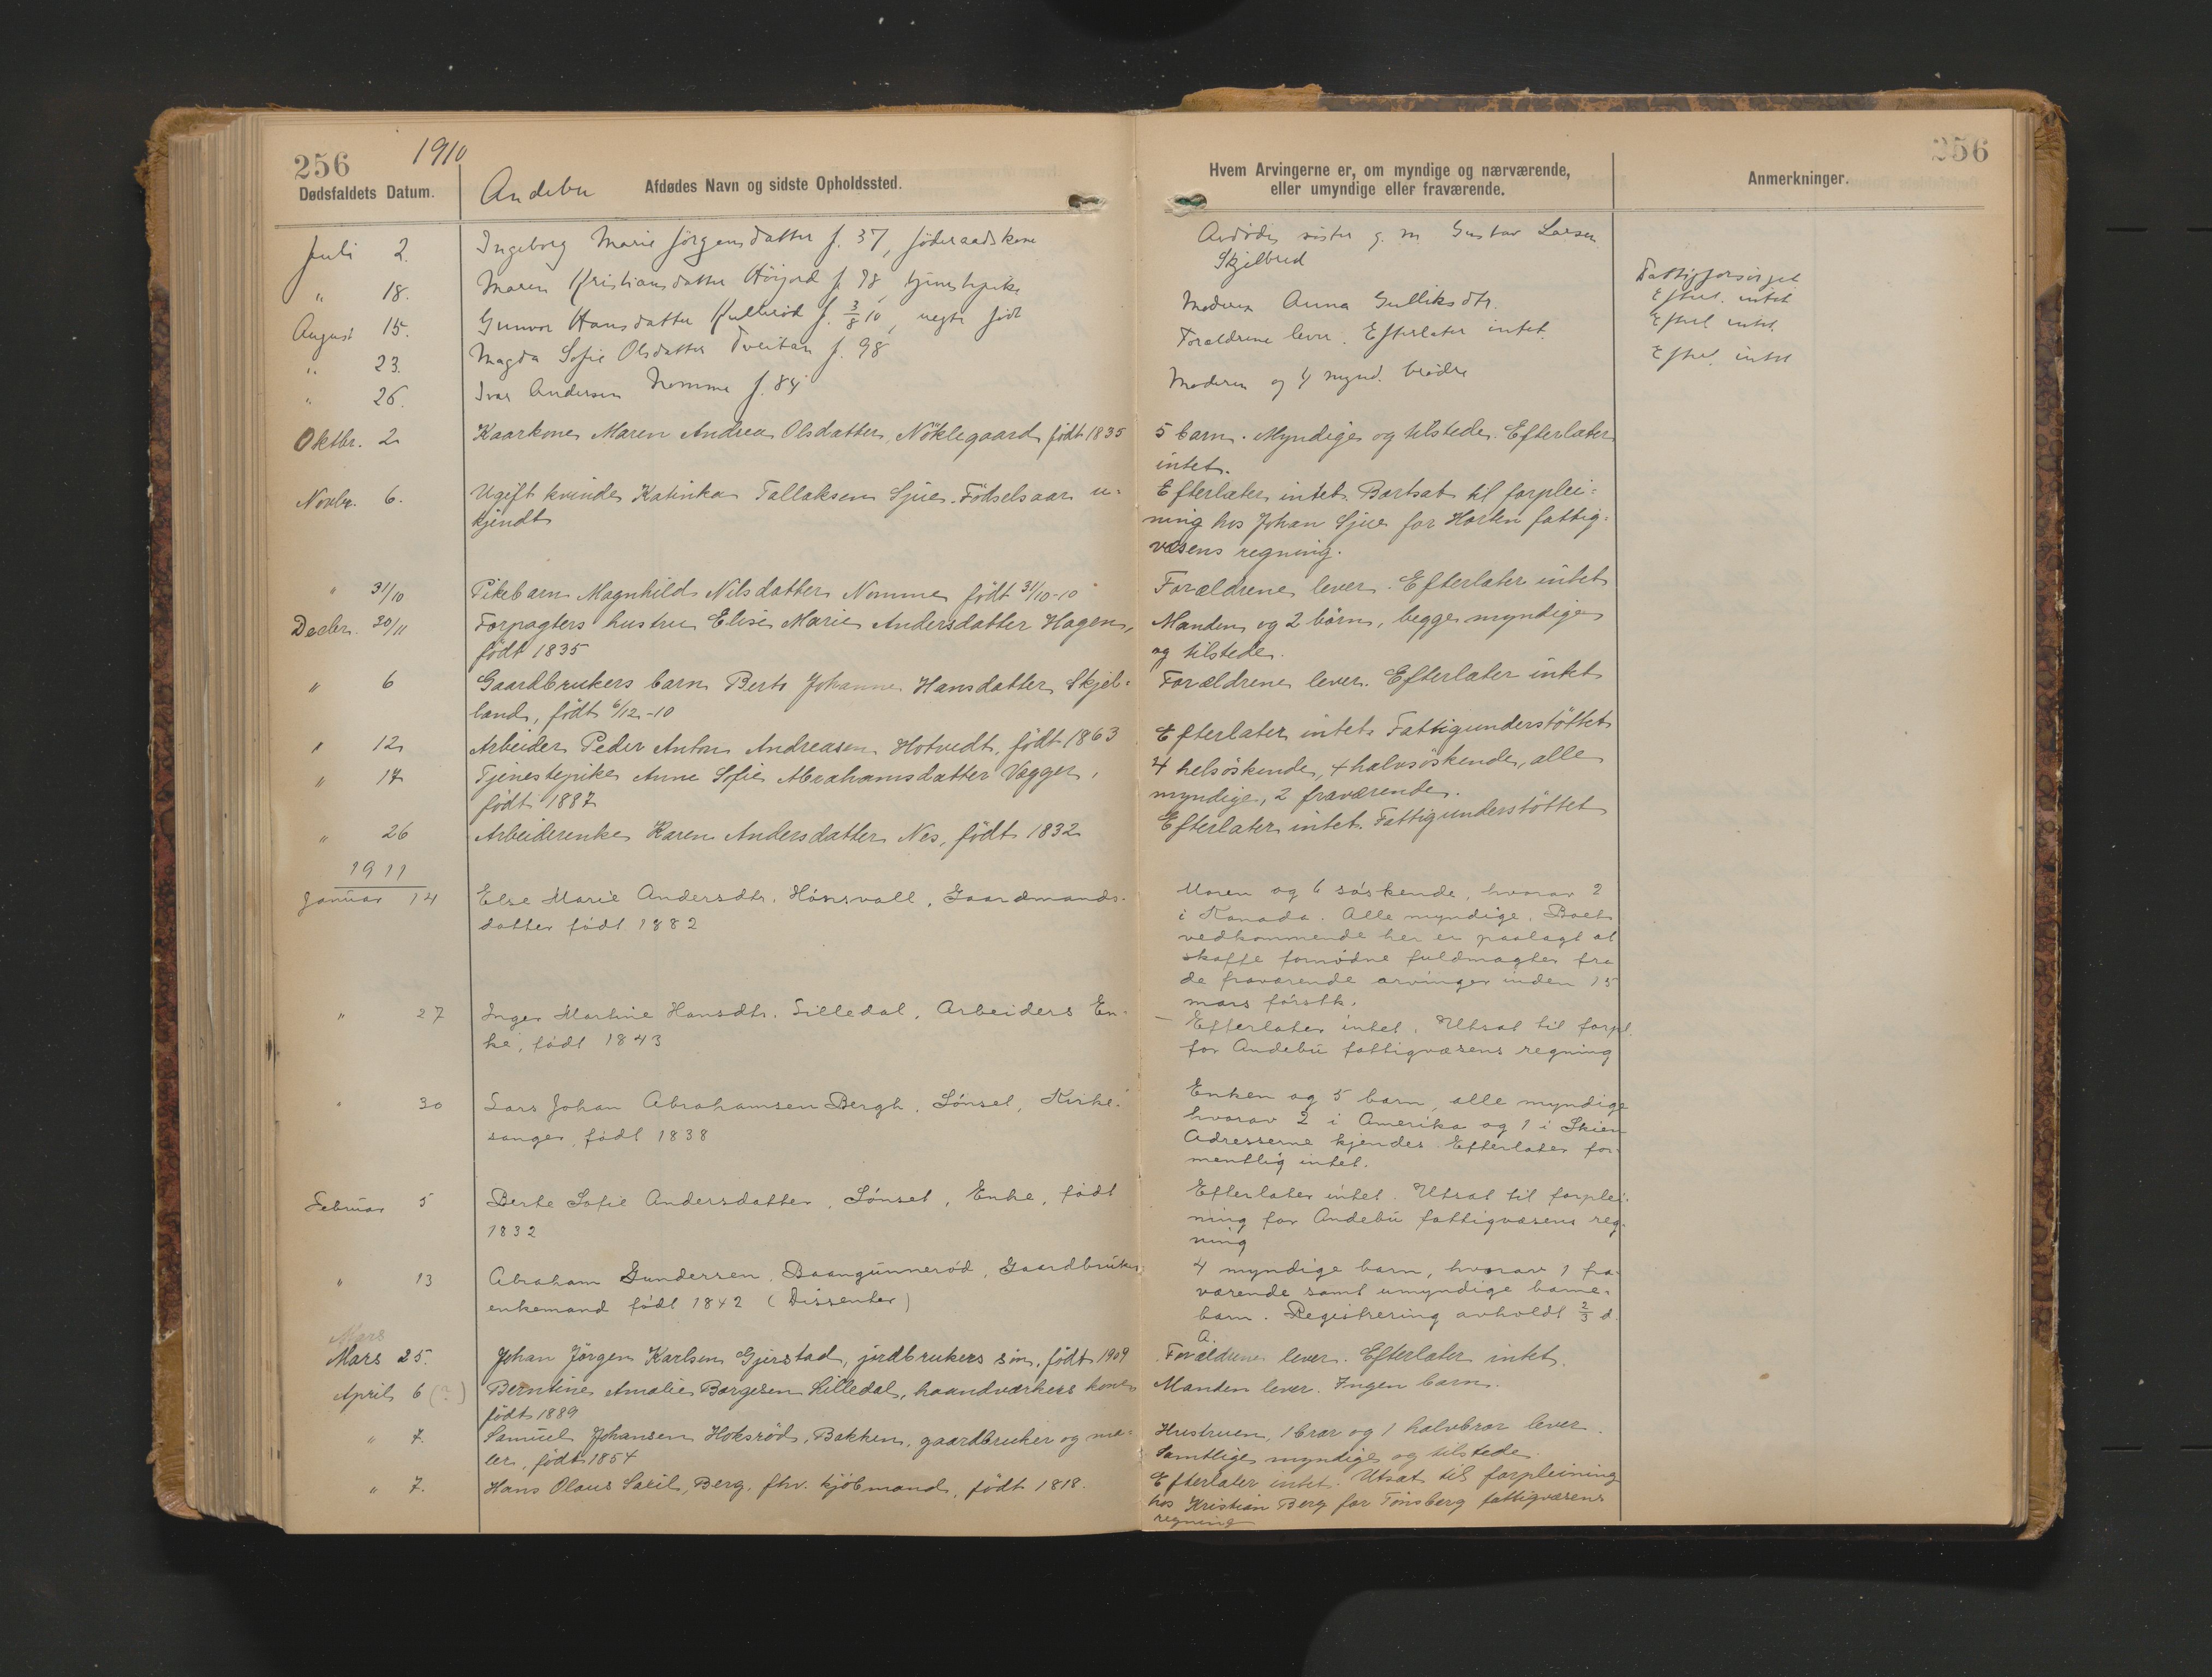 256
1910
256
Dødsfaldets Datum.
Andebu
Afdødes Navn og sidste Opholdssted.
Hvem Arvingerne er, om myndige og nærværende,
eller umyndige eller fraværende.
Anmerkninger.
Juli 2. Ingeborg Marie Jörgensdatter f. 37, föderaadskone
søster g. m. Gustav Larsen
Skjelbred
Fattigforsörget
" 18. Maren Kristiansdatter f. 98, tjenestepike
Moderen Anna Gulliksdtr.
Efterl. intet
August 15. Gunvor Hansdatter f. 3/8 10, født
Forældrene lever. Efterlater intet.
Efterl intet
" 23. Magda Sofie Olsdatter Tveitan f. 98
Efterl. intet
" 26. Ivar Andersen Nomme f. 84
Moderen og 4 mynd. brödre
Oktbr. 2 Kaarkone Maren Andrea Olsdatter, Nöklegaard født 1835
5 barn. Myndige og tilstede. Efterlater
intet.
Novbr. 6. Ugift kvinde Katinka Tallaksen Sjue. Födselsaar u-
kjendt
Efterlater intet. Bortsat til forplei-
ning hos Johan Sjue for Horten fattig-
væsens regning.
" 31/10 Pikebarn Magnhild Nilsdatter Nomme født 31/10-10
Forældrene lever. Efterlater intet
Decbr. 30/11 Forpagters hustru Elise Marie Andersdatter Hagen,
født 1835
Manden og 2 börn, begge myndige
og tilstede.
" 6 Gaardbrukers barn Berte Johanne Hansdatter Skjel-
land, født 6/12-10
Forældrene lever. Efterlater intet
" 12 Arbeider Peder Anton Andreasen Hotvedt, født 1863
Efterlater intet. Fattigunderstöttet
" 17 Tjenestepike Anne Sofie Abrahamsdatter Vegger,
født 1887
4 helsöskende, 4 halvsöskende, alle
myndige, 2 fraværende.
" 26 Arbeiderenke Karen Andersdatter Nes, født 1832
Efterlater intet. Fattigunderstöttet
1911
Januar 14 Else Marie Andersdtr. Hönsvall, Gaardmands-
datter født 1882
Moren og 6 söskende, hvorav 2
i Kanada. Alle myndige. Boets
vedkommende her er paalagt at
skaffe fornödne fuldmagter fra
de fraværende arvinger inden 15
mars förstk.
" 27 Inger Martine Hansdtr. Lilledal, Arbeiders En-
ke, født 1843
Efterlater intet. Utsat til forpl.
for Andebu fattigvæsens regning
" 30 Lars Johan Abrahamsen Bergh, Lönsel, Kirke-
sanger, født 1838
Enken og 5 barn, alle myndige
hvorav 2 i Amerika og 1 i Skien
Adresserne kjendes. Efterlater for-
mentlig intet.
Februar 5 Berte Sofie Andersdatter, Lönset, Enke, født
1832
Efterlater intet. Utsat til forplei-
ning for Andebu fattigvæsens reg-
ning
" 13 Abraham Gundersen, Baangunneröd, Gaardbruker
enkemand født 1842 (Dissenter)
4 myndige barn, hvorav 1 fra-
værende samt umyndige barne-
barn. Registrering avholdt 2/3 d.
A.
Mars
Mars 25. Johan Jörgen Karlsen Gjerstad, jordbrukers sön, født 1909
Forældrene lever. Efterlater intet.
April 6 (?) Berntine Amalie Borgesen Lilledal, haandværkers kone
født 1889
Manden lever. Ingen barn.
" 7. Samuel Johansen Hoksröd, Bakken, gaardbruker og ma-
ler, født 1854
Hustruen, 1 bror og 1 halvbror lever.
Samtlige myndige og tilstede.
" 7. Hans Olaus Saxil, Berg, fhv. kjöbmand, født 1818.
Efterlater intet. Utsat til forpleining
hos Kristian Berg for Tönsberg fattigvæsens
regning